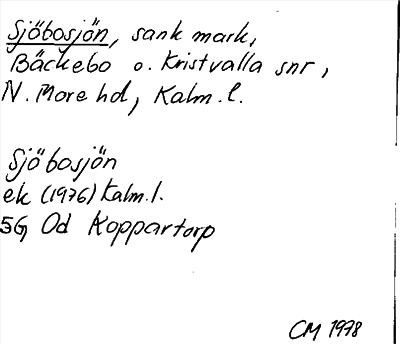 Sjöbosjön, sank mark,
Bäckebo o. Kristvalla snr,
N. More hd, Kalm. l.
Sjöbosjön
ek (1976) Kalm. l.
5G Od Koppartorp
CM 1978